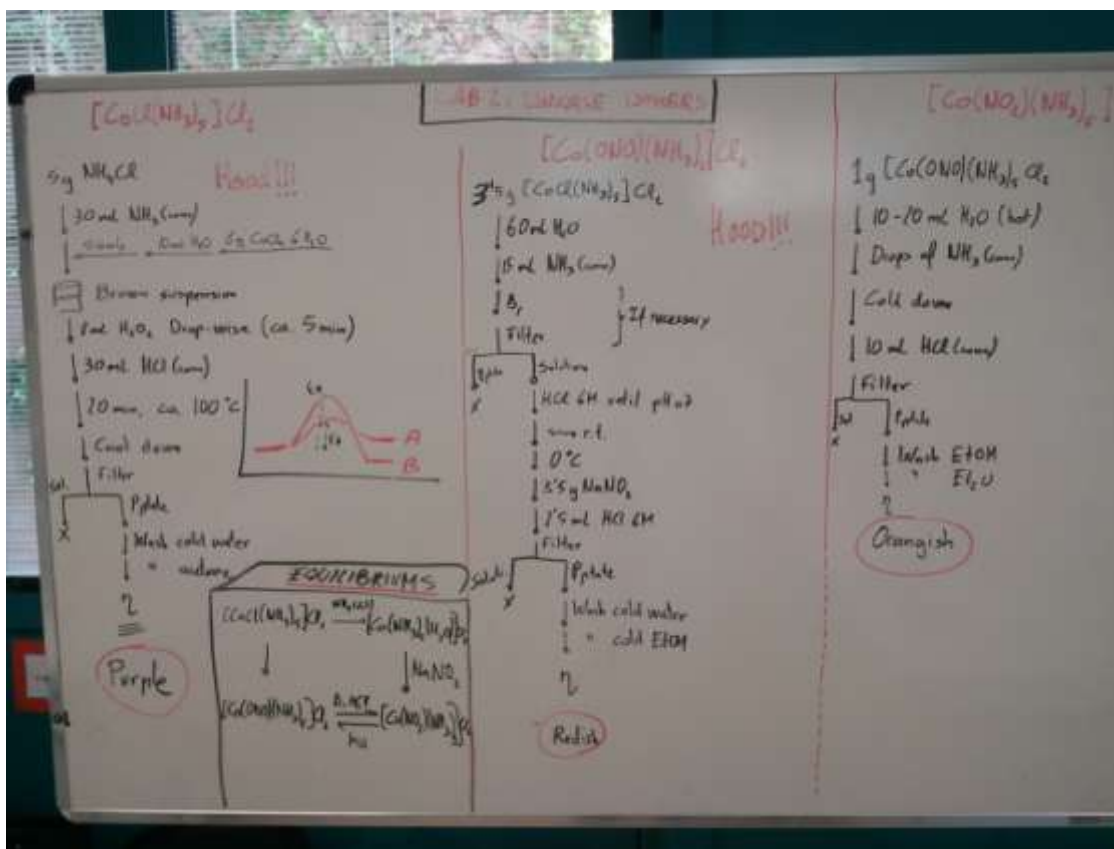 LINKAGE ISOMERS
[CoCl(NH3)5]Cl2
Hood!!!
5g NH4Cl
30 mL NH3 (conc)
10 mL H2O
5g CoCl2 6H2O
Brown suspension
mL H2O2 Drop-wise (ca. 5 min)
30 mL HCl (conc)
20 min, ca. 100°C
Cool down
Filter
Sol.
Pptate
X
Wash cold water
"
η
Purple
Ea
Ea
A
B
EQUILIBRIUMS
[CoCl(NH3)5]Cl2
NaNO2
[Co(ONO)(NH3)5]Cl2
[Co(NO2)(NH3)5]Cl2
hν
[Co(ONO)(NH3)5]Cl2
Hood!!!
3'5g [CoCl(NH3)5]Cl2
60 mL H2O
15 mL NH3 (conc)
If necessary
Filter
Solution
X
HCl 6M until pH≈7
r.t.
0°C
NaNO2
HCl 6M
Filter
Pptate
X
Wash cold water
" cold EtOH
η
Redish
[Co(NO2)(NH3)5]
1g [Co(ONO)(NH3)5 Cl2
10-20 mL H2O (hot)
Drops of NH3 (conc)
Cold down
10 mL HCl (conc)
Filter
Sol
Pptate
X
Wash EtOH
" Et2O
η
Orangish